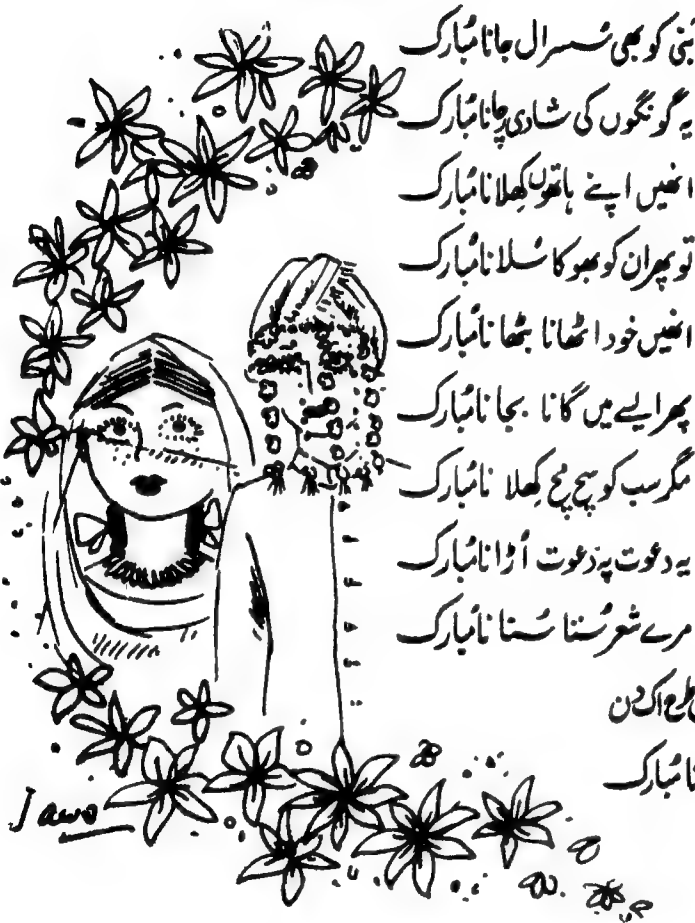 بنّی کو بھی سُسرال جانا مُبارک
یہ گونگوں کی شادی رچانا مُبارک
انھیں اپنے ہاتھوں کھِلانا مُبارک
تو پھر ان کو بھوکا سُلانا مُبارک
انھیں خود اٹھانا بٹھانا مُبارک
پھر ایسے میں گانا بجانا مُبارک
مگر سب کو سچ مچ کھِلا نا مُبارک
یہ دعوت پہ دعوت اُڑانا مُبارک
مرے شعر سُننا سُنانا مُبارک
طرح اک دن
نا مُبارک
Jawa